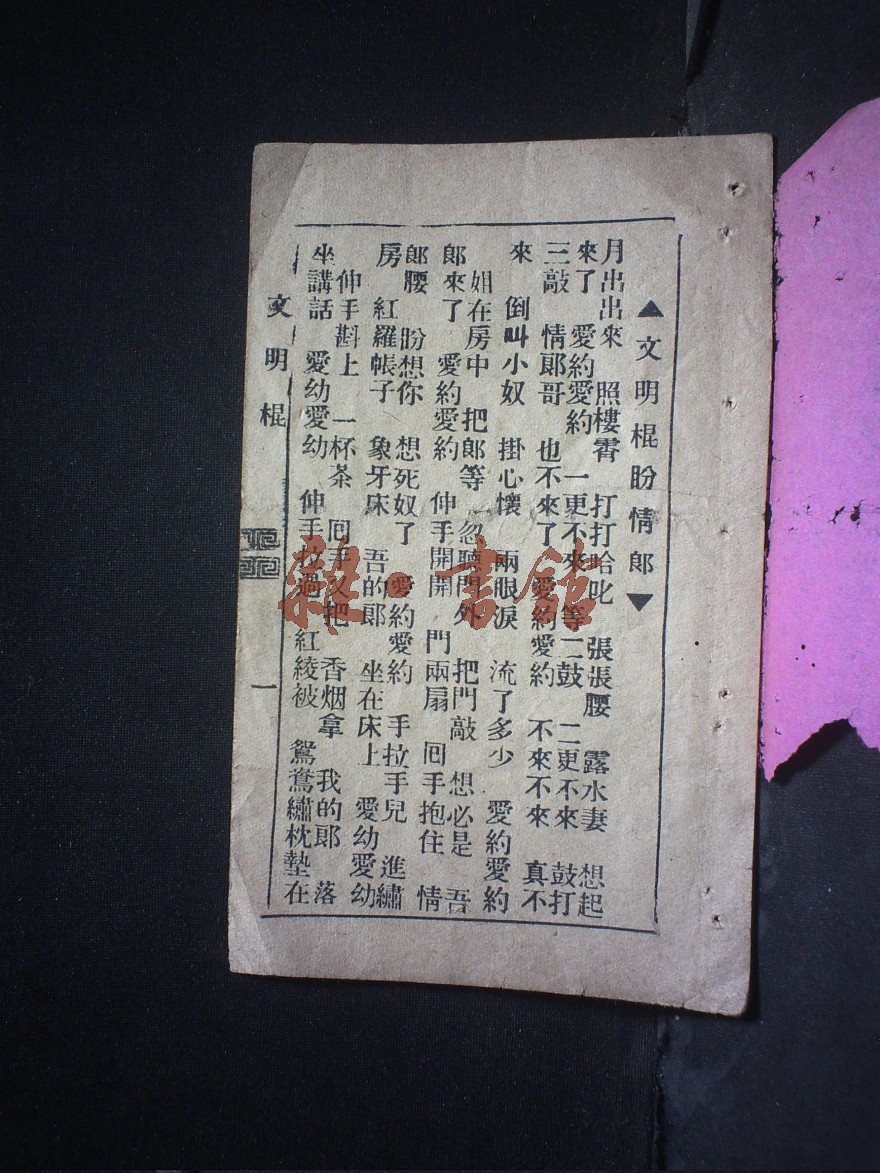 ▲文明棍盼情郎▼
月出出來　照樓霄　打打哈叱　張張腰　露水妻　想起
來了　愛約愛約　一更不來　等二鼓　二更不來　鼓打
三敲　情郎哥　也不來了　愛約愛約　不來不來　真不
來　倒叫小奴　掛心懷　兩眼淚　流了多少　愛約愛約
姐在房中　把郎等　忽聽門外　把門敲　想必是　吾
郎來了　愛約愛約　伸手開開　門兩扇　囘手抱住　情
郎腰　盼想你　想死奴了　愛約愛約　手拉手兒　進繡
房　紅羅帳子　象牙床　吾的郎　坐在床上　愛幼愛幼
伸手斟上　一杯茶　囘手又把　香烟拿　我的郎　落
坐講話　愛幼愛幼　伸手拉過　紅綾被　鴛鴦繡枕墊在
文明棍　一
雜·書館